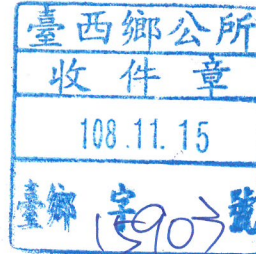 臺西鄉公所
收件章
108.11.15
臺鄉 字 15903 號